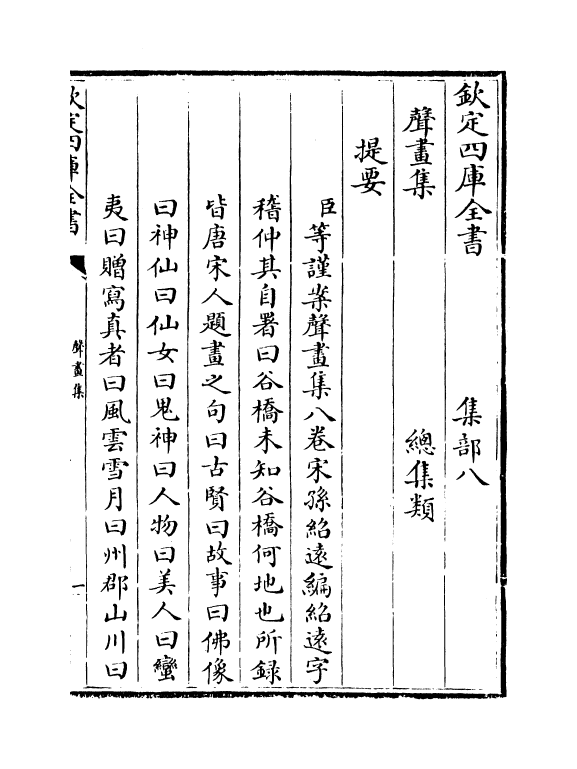 欽定四庫全書　集部八
聲畫集　總集類
提要
臣等謹案聲畫集八卷宋孫紹遠編紹遠字
稽仲其自署曰谷橋未知谷橋何地也所録
皆唐宋人題畫之句曰古賢曰故事曰佛像
曰神仙曰仙女曰鬼神曰人物曰美人曰蠻
夷曰贈寫真者曰風雲雪月曰州郡山川曰
欽定四庫全書
聲畫集
一